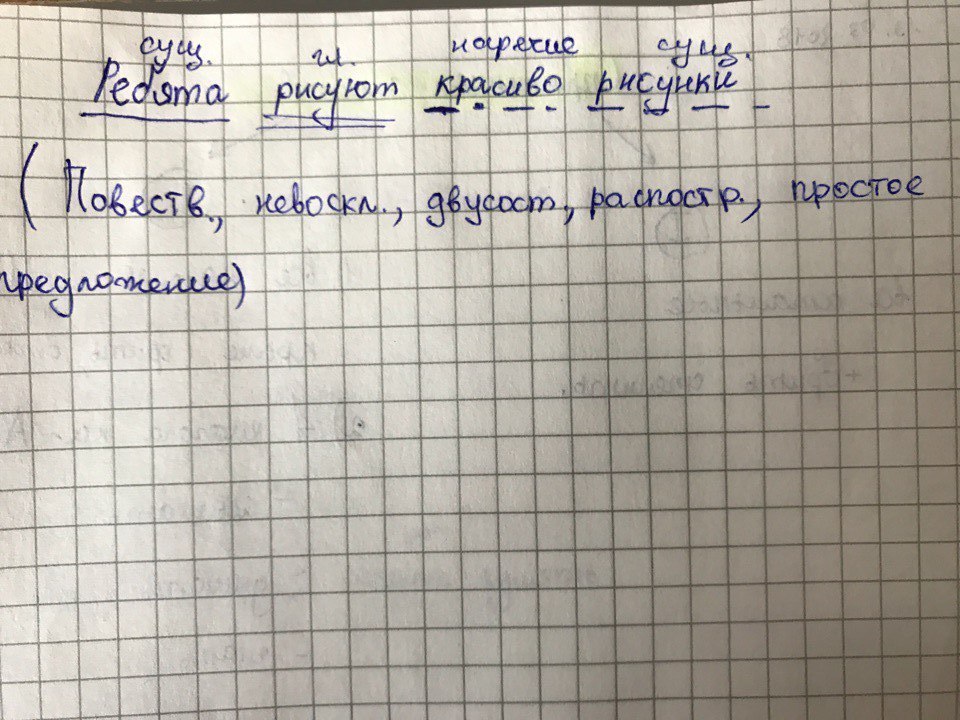 сущ. гл. наречие сущ.
Ребята рисуют красиво рисунки
(Повеств., невоскл., двусост, распостр., простое
предложение)